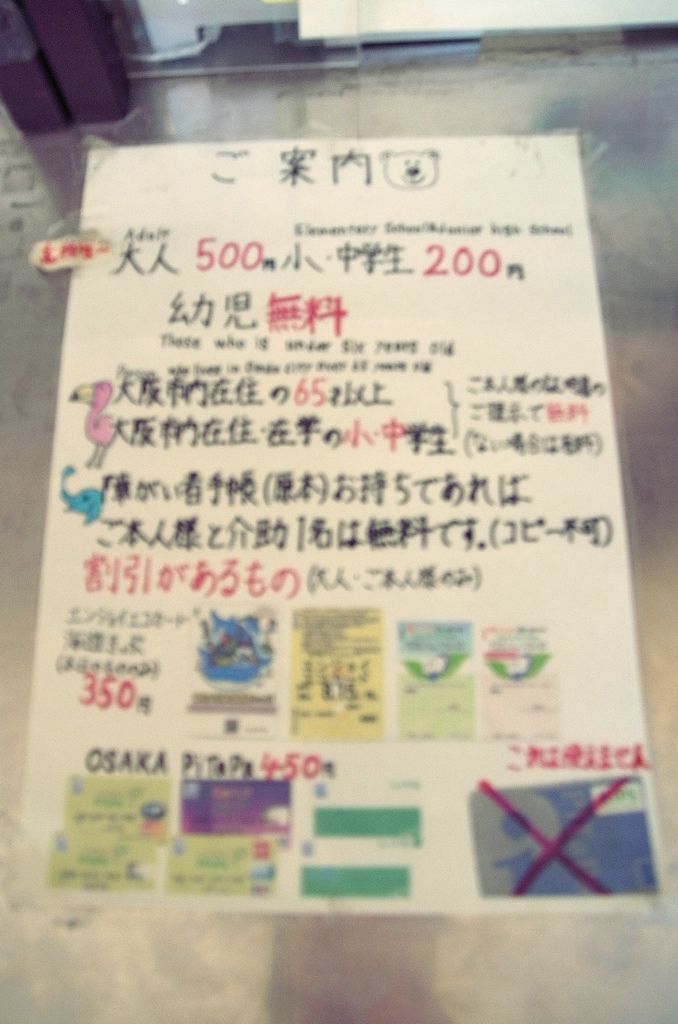 ご案内
Adult Elementary School/Junior high School
大人 500円 小・中学生 200円
幼児 無料
Those who is under Six years old
Person who lives in Osaka city over 65 years old
大阪市内在住の65才以上
大阪市内在住・在学の小・中学生
ご本人様の証明書の
ご提示で無料
(ない場合は有料)
障がい者手帳(原本)お持ちであれば
ご本人様と介助1名は無料です。(コピー不可)
割引があるもの(大人・ご本人様のみ)
エンジョイエコカード
海遊きっぷ
350円
OSAKA PiTaPa 450円
これは使えません